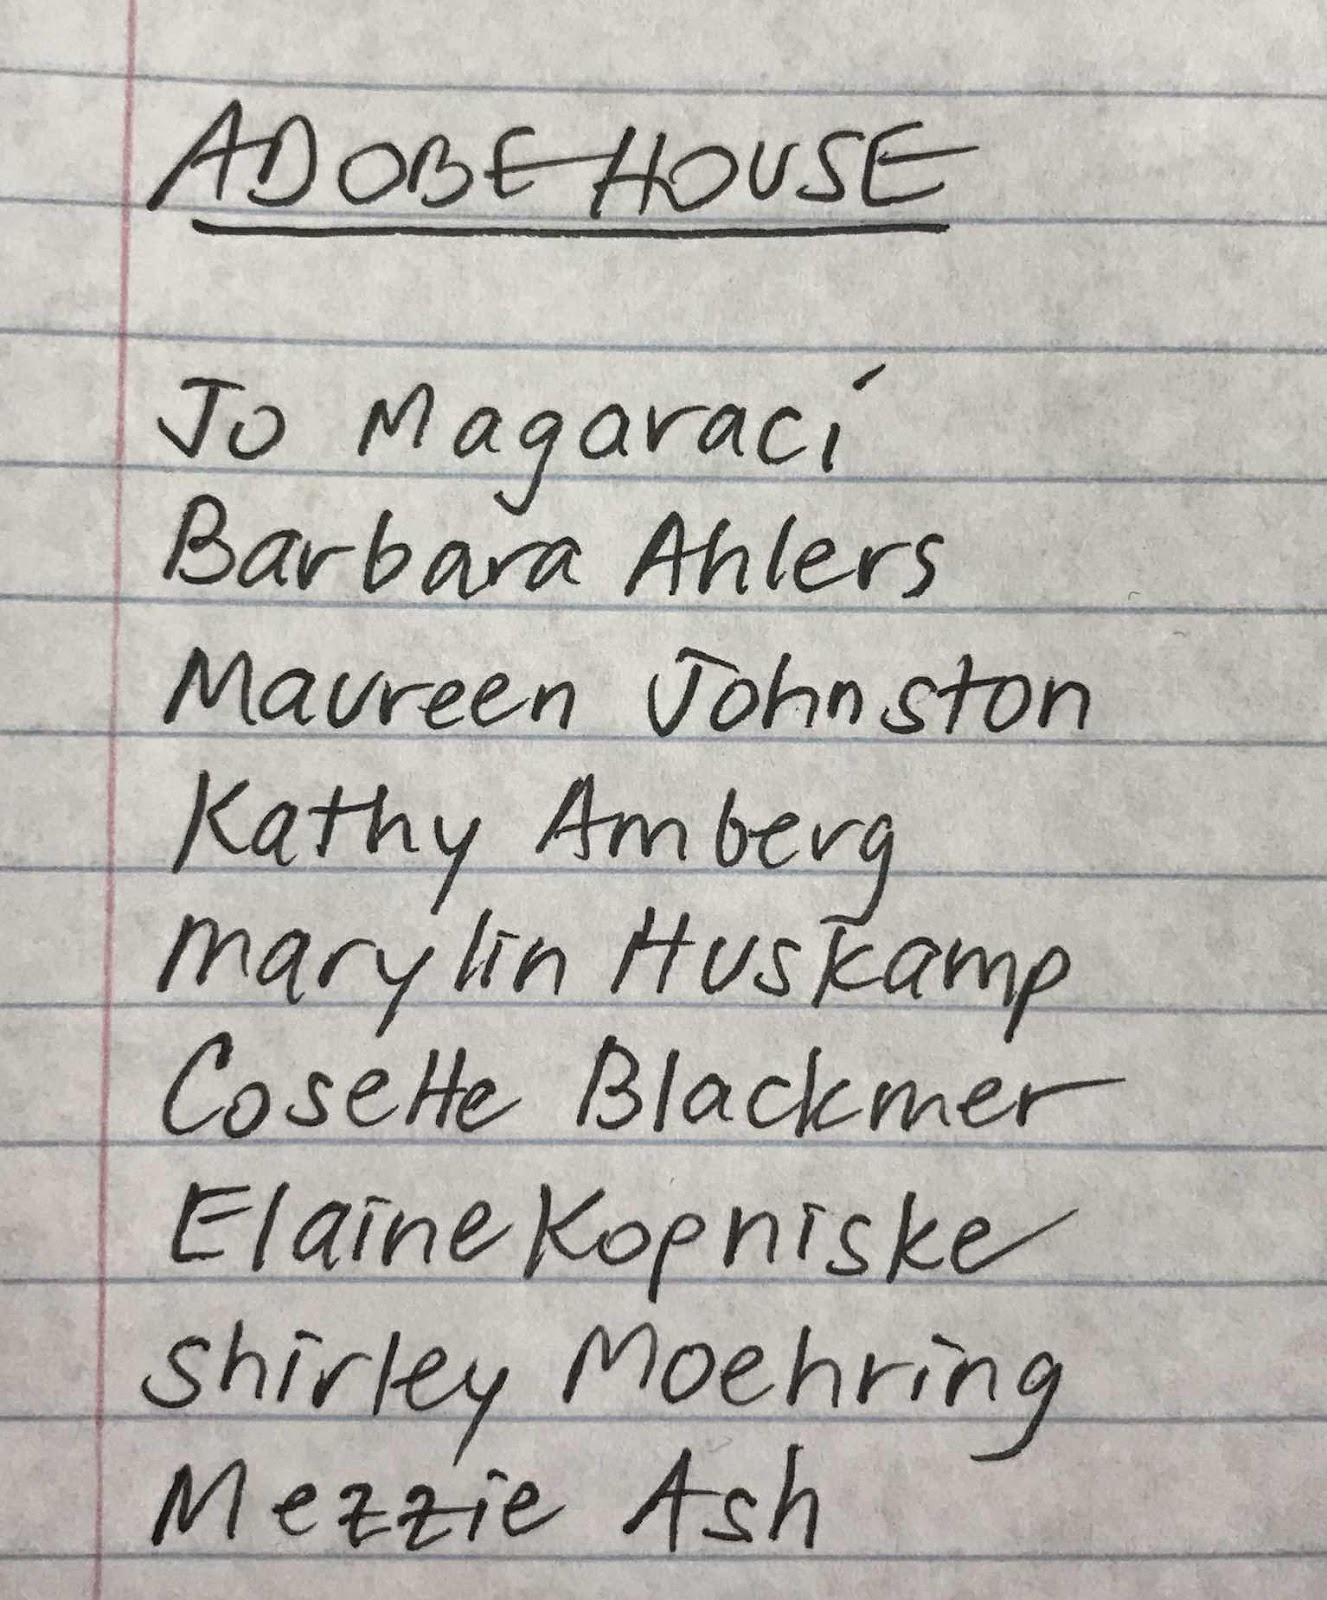 ADOBE HOUSE
Jo Magaraci
Barbara Ahlers
Maureen Johnston
Kathy Amberg
Marylin Huskamp
Cosette Blackmer
Elaine Kopniske
Shirley Moehring
Mezzie Ash